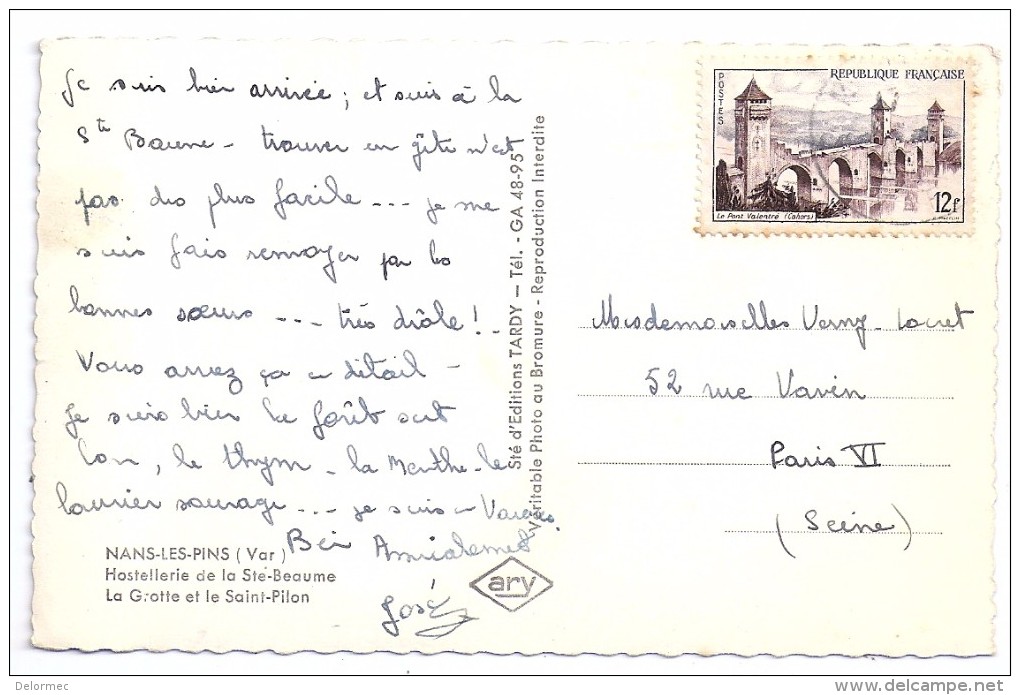 Je suis bien arrivée ; et suis à la
Ste Baume - trouver un gîte n'est
pas des plus facile --- je me
suis fais renvoyer par les
bonnes sœurs --- très drôle !-
Vous aurez ça en détail -
Je suis bien la forêt sent
bon, le thym - la Menthe - le
laurier sauvage --- je suis en Vacances.
Bien Amicalement
José
NANS-LES-PINS (Var)
Hostellerie de la Ste-Beaume
La Grotte et le Saint-Pilon
Sté d'Editions TARDY — Tél. - GA 48-95
Véritable Photo au Bromure - Reproduction Interdite
ary
POSTES
REPUBLIQUE FRANÇAISE
Le Pont Valentré (Cahors)
12f
Mesdemoiselles Verny-
52 rue Vavin
Paris VI
(Seine)
Delormec
www.delcampe.net